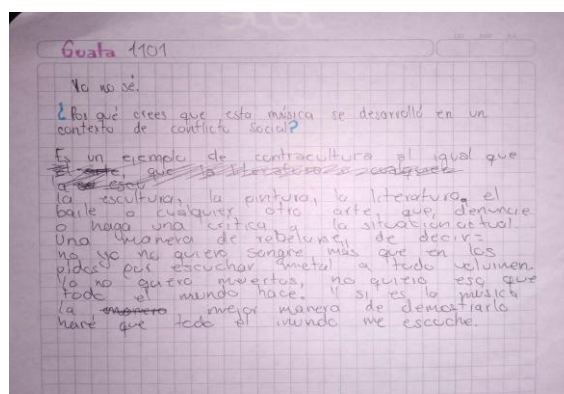 Guata 1101
Yo no sé.
¿Por qué crees que esta música se desarrolló en un
contexto de conflicto social?
Es un ejemplo de contracultura al igual que
la escultura, la pintura, la literatura, el
baile o cualquier otro arte, que, denuncie
o haga una crítica a la situación actual.
Una manera de rebelarse, de decir:
no yo no quiero sangre más que en los
oidos por escuchar metal a todo volumen.
Yo no quiero muertos, no quiero eso que
todo el mundo hace. Y si es la música
la mejor manera de demostrarlo
haré que todo el mundo me escuche.